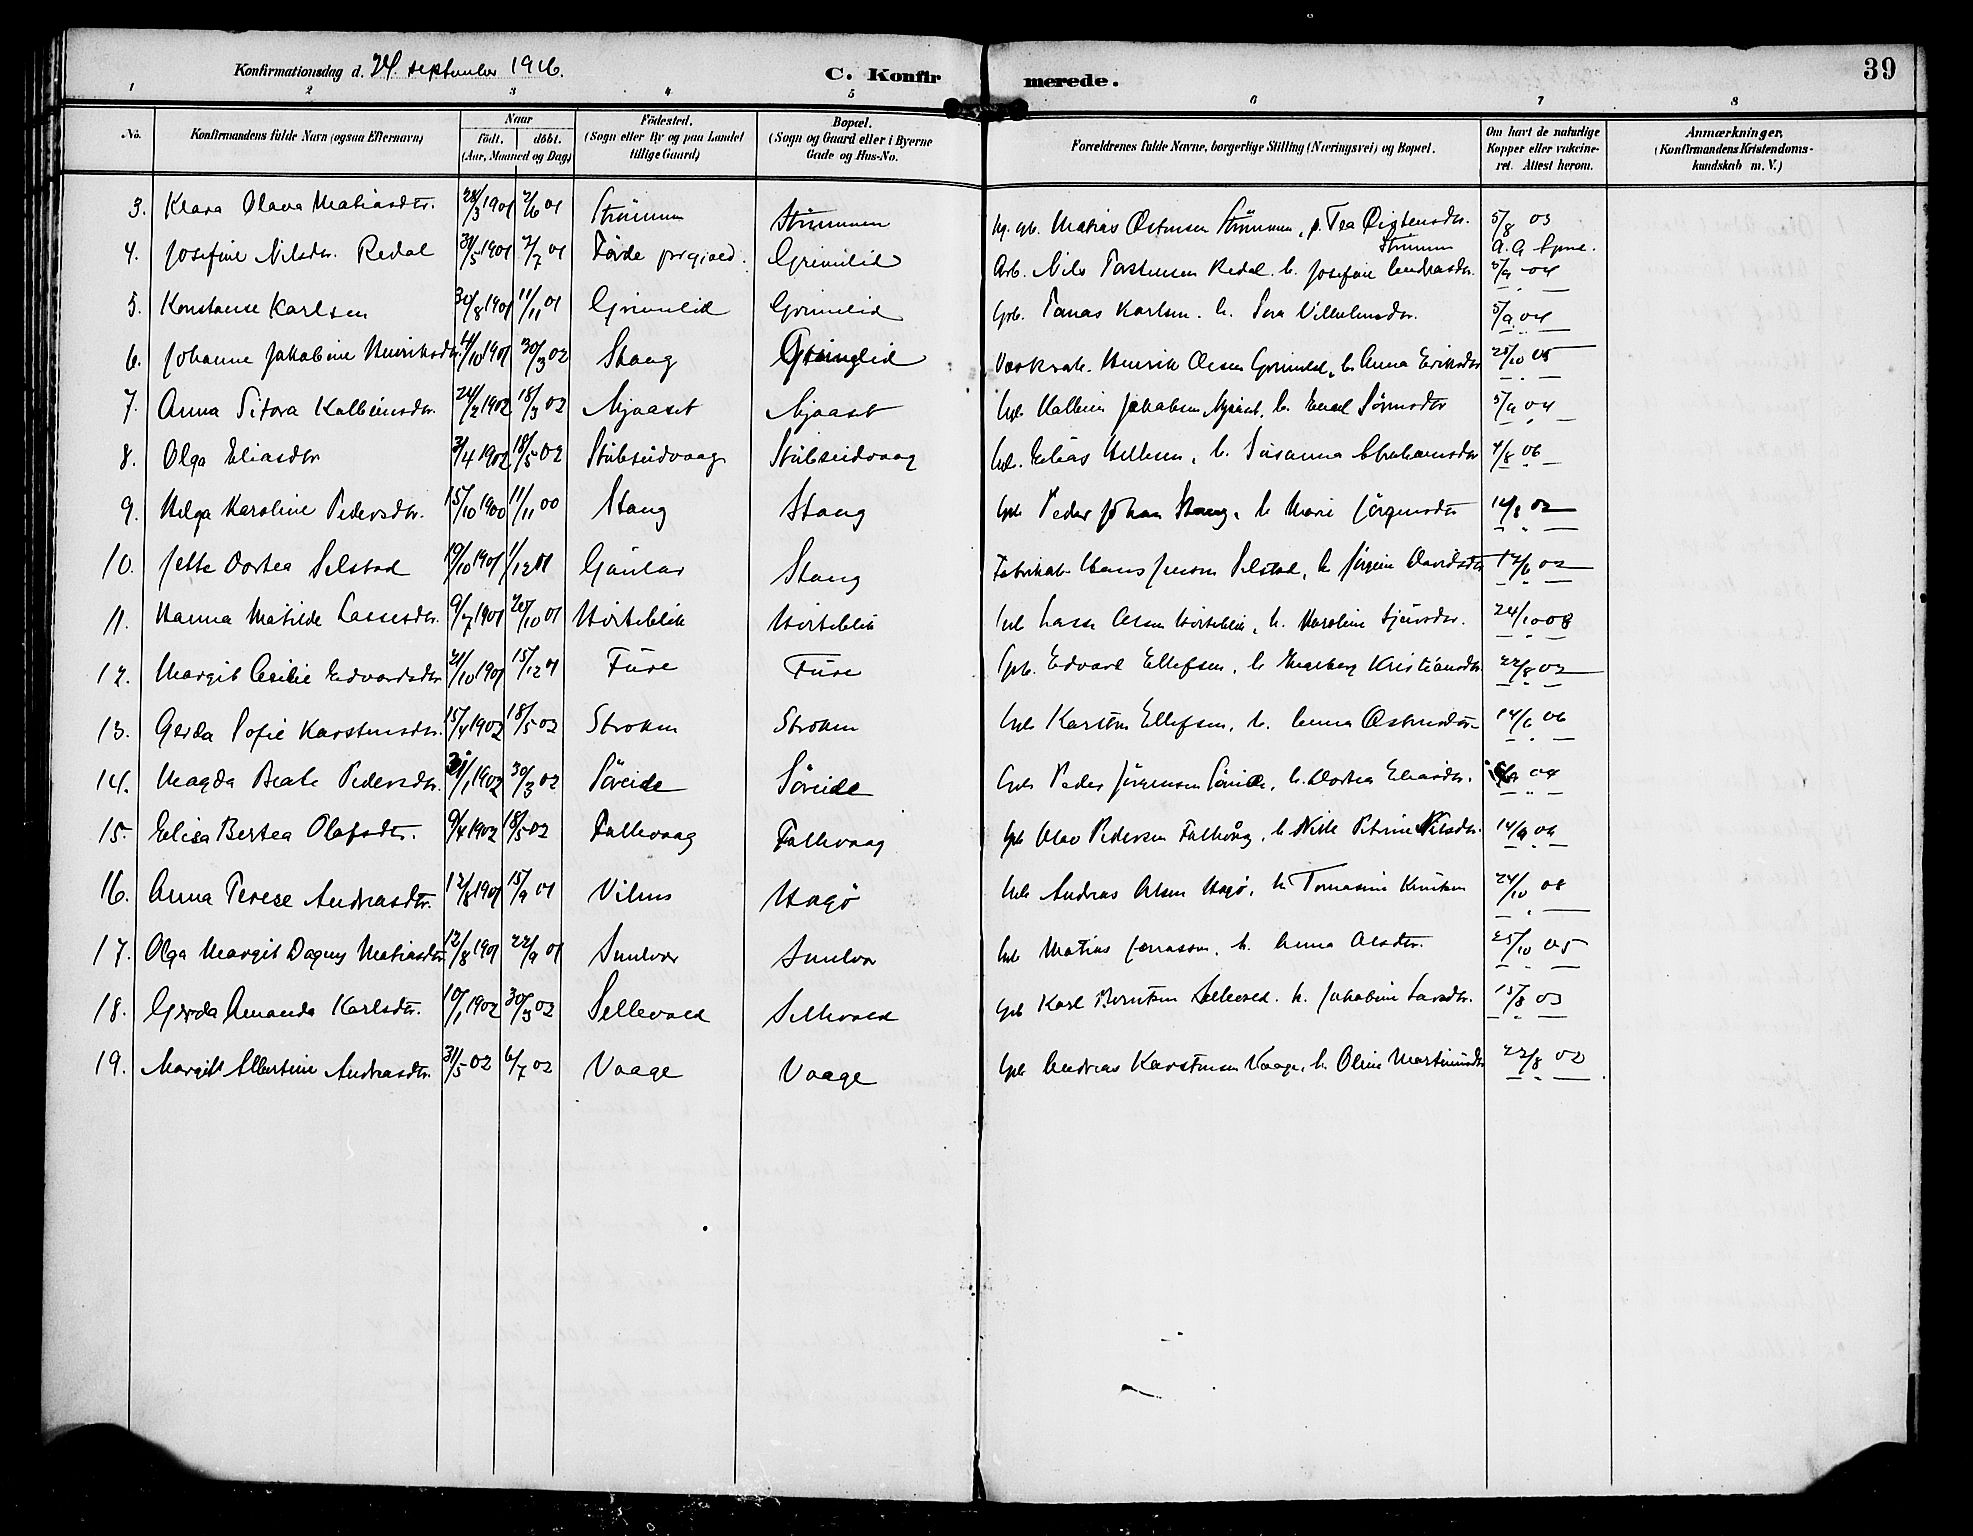 Konfirmationsdag d. 24. september 1916. C. Konfirmerede. 39
1 2 3 4 5 6 7 8
No. Konfirmandens fulde Navn (ogsaa Efternavn) Naar födt. döbt. (Aar, Maaned og Dag) Födested. (Sogn eller By og paa Landet tillige Gaard) Bopæl. (Sogn og Gaard eller i Byerne Gade og Hus-No. Forældrenes fulde Navne, borgerlige Stilling (Næringsvei) og Bopæl. Om havt de naturlige Kopper eller vaccineret. Attest herom. Anmærkninger, (Konfirmandens Kristendomskundskab m. V.)
3. Klara Olava Matiasdtr. 28/3 1901 2/6 01 Strömmen Strömmen Matias Strömmen, Tea Strömmen 5/8 03
4. Josefine Nilsdtr. Redal 31/5 1901 7/7 01 Förde Grimelid Arb. Nils Torstensen Redal. h. Josefine Andreasdtr. 5/9 04
5. Konstanse Karlsen 30/8 1901 11/11 01 Grimelid Grimelid Grb. Karlsen. h. Vilhelmsdtr. 5/9 04
6. Johanne Jakobine Henriksdtr. 4/10 1901 30/3 02 Stang Grimelid Henrik Olsen Grimelid, h. Anna Eriksdtr 25/10 05
7. Anna Sitora Kolbeinsdtr. 24/2 1902 18/3 02 Njaaset Njaaset Kolbein Jakobsen h. Sörensdtr 5/9 04
8. Olga Eliasdtr 3/4 1902 18/5 02 Stubseidvaag Stubseidvaag Elias h. Susanna Abrahamsdtr 4/8 06
9. Helga Karoline Pedersdtr. 15/10 1900 11/11 00 Stang Stang Gbr Peder Johan Stang, h Marie Jörgensdtr 14/8 02
10. Jette Dortea Selstad 19/10 1901 1/12 01 Gaular Stang Fabrikarb. Hans Jensen Selstad, h Davidsdtr 14/6 02
11. Hanna Matilde Lassesdtr. 9/7 1901 20/10 01 Hörteblik Hörteblik Lasse Olsen Hörteblik, h. Karoline Sjursdtr. 24/10 08
12. Margit Cecilie Edvardsdtr 21/10 1901 15/12 01 Fure Fure Gbr. Edvard Ellefsen, h Ingeborg Kristiansdtr 22/8 02
13. Gerda Sofie Karstensdtr. 15/4 1902 18/5 02 Stroken Stroken Gbr Karsten Ellefsen, h. Anna 14/6 06
14. Magda Beate Pedersdtr. 31/1 1902 30/3 02 Söreide Söreide Gbr Peder Jörgensen Söreide, h. Dortea Eliasdtr. 04
15. Elisa Bertea Olafsdtr. 9/4 1902 18/5 02 Falkevaag Falkevaag Gbr Olav Pedersen Falkevåg, h Petrine Nilsdtr. 14/9 06
16. Anna Terese Andreasdtr. 12/8 1901 15/9 01 Vilnes Hagö Gbr Andreas Olsen Hagö, h. Tomasine Knutsen 24/10 08
17. Olga Margit Dagny Matiasdtr 12/8 1901 22/9 01 Smelvar Smelvar Gbr Matias Jonasson, h. Anna Olsdtr. 25/10 05
18. Gerda Amanda Karlsdtr. 10/1 1902 30/3 02 Sellevold Sellevold Gbr Karl Berntsen Sellevold. h. Jakobine Larsdtr. 15/8 03
19. Margit Albertine Andreasdtr. 31/5 02 6/7 02 Vaage Vaage Gbr Andreas Karstensen Vaage, h. Oline Martinusdtr 22/8 02